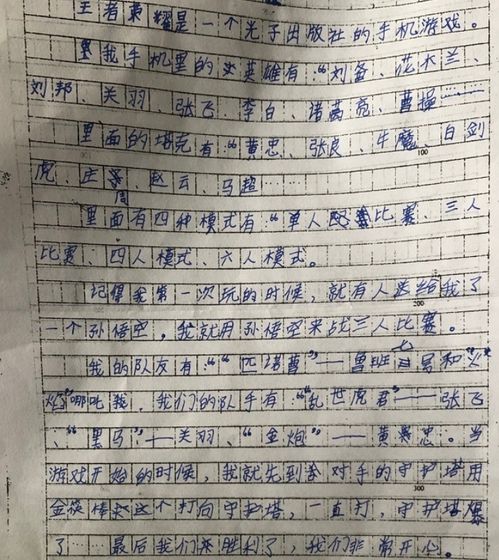 王者荣耀是一个光子出版社的手机游戏。
我手机里的英雄有：“刘备、花木兰、
刘邦、关羽、张飞、李白、诸葛亮、曹操……
里面的塔克有“黄忠、张良、牛魔、白剑
虎、庄周、赵云、马超……
里面有四种模式有“单人比赛、三人
比赛、四人模式、六人模式。
记得我第一次玩的时候，就有人送给我了
一个孙悟空，我就用孙悟空来战三人比赛。
我的队友有：“匹诺曹”——鲁班七号和“火
焰”哪吒，我们的队手有：“乱世虎君”——张飞
、“黑马”——关羽、“金炮”——黄忠。当
游戏开始的时候，我就先到对手的守护塔用
金箍棒这个打向守护塔，一直打，守护塔爆
了……最后我们胜利了，我们非常开心。
100
200
300